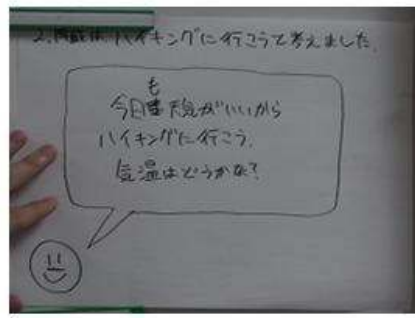 2. はハイキングに行こうと考えました。
今日も天気がいいから
ハイキングに行こう.
気温はどうかな?